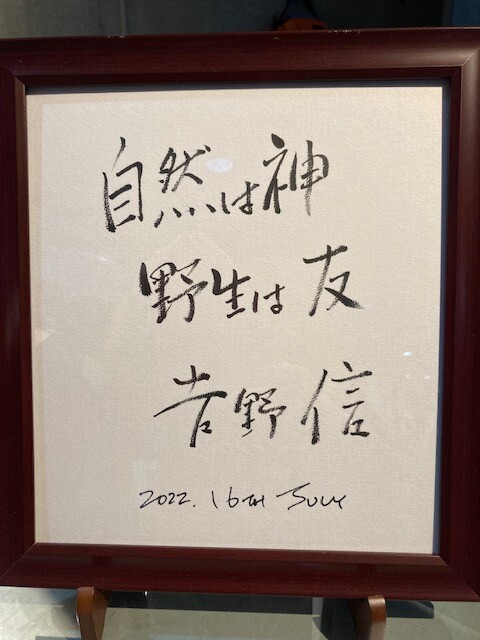 自然は神
野生は友
吉野信
2022. 16TH JULY